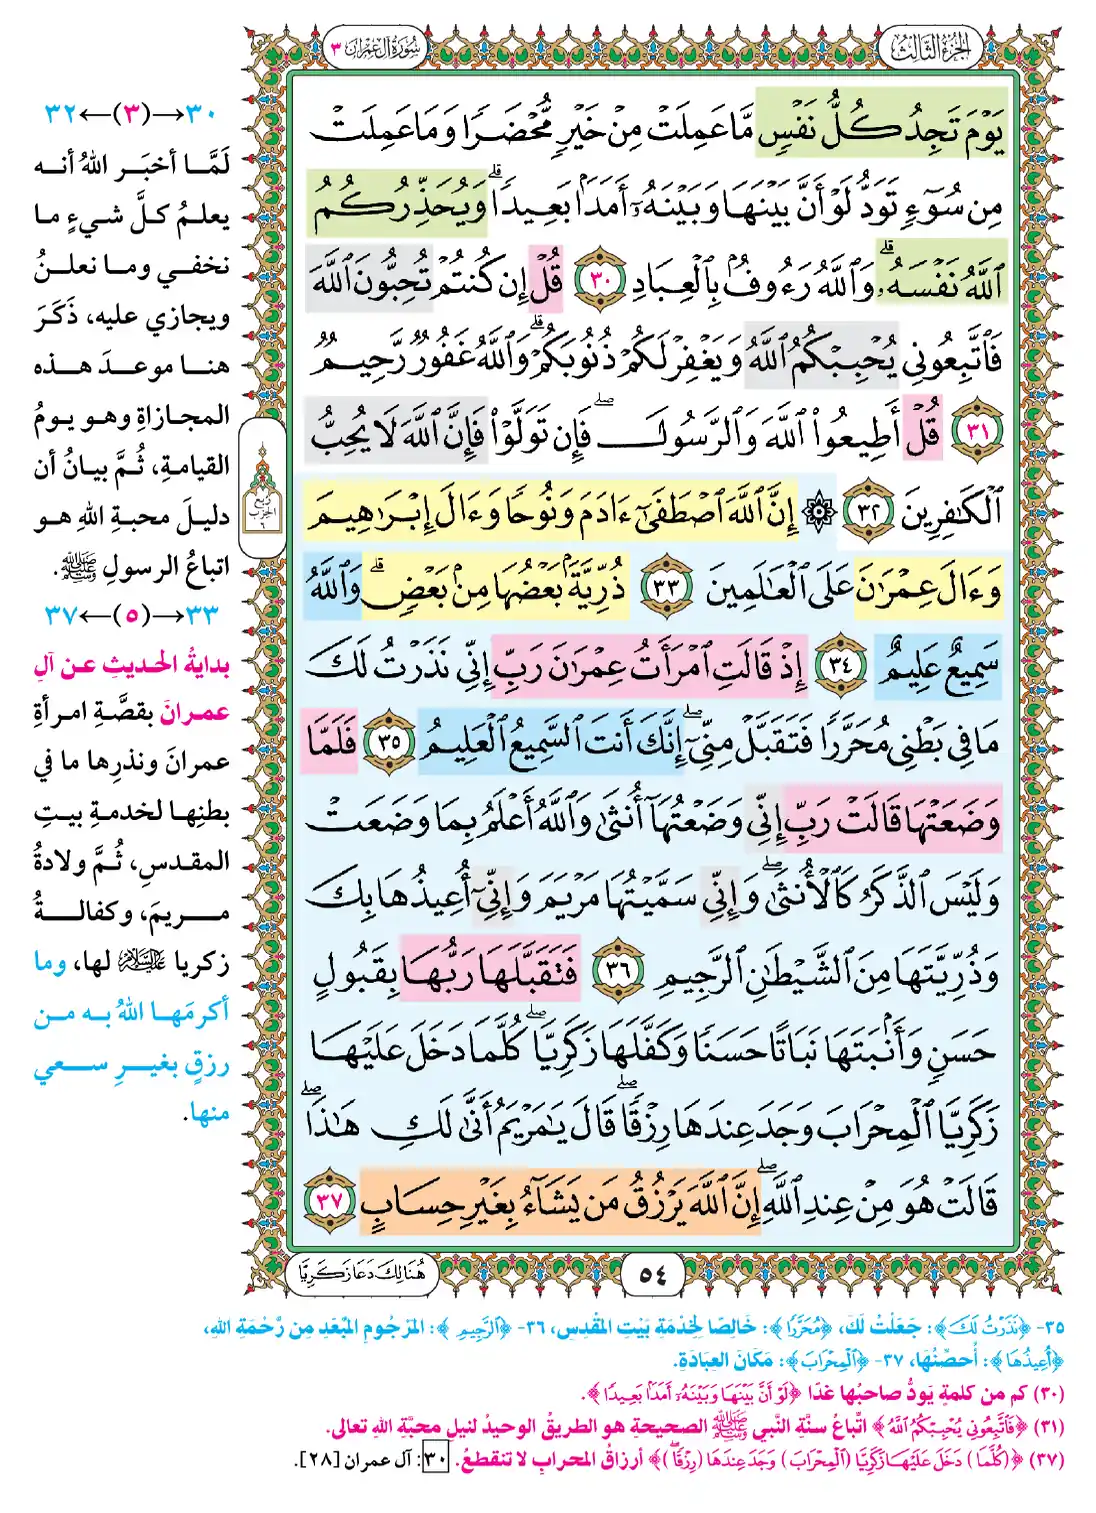 الجزء الثالث
سورة آل عمران ٣
يَوْمَ تَجِدُ كُلُّ نَفْسٍ مَّا عَمِلَتْ مِنْ خَيْرٍ مُّحْضَرًا وَمَا عَمِلَتْ
مِن سُوٓءٍ تَوَدُّ لَوْ أَنَّ بَيْنَهَا وَبَيْنَهُۥٓ أَمَدًۢا بَعِيدًا ۗ وَيُحَذِّرُكُمُ
ٱللَّهُ نَفْسَهُۥ ۗ وَٱللَّهُ رَءُوفٌۢ بِٱلْعِبَادِ ٣٠ قُلْ إِن كُنتُمْ تُحِبُّونَ ٱللَّهَ
فَٱتَّبِعُونِى يُحْبِبْكُمُ ٱللَّهُ وَيَغْفِرْ لَكُمْ ذُنُوبَكُمْ ۗ وَٱللَّهُ غَفُورٌ رَّحِيمٌ
٣١ قُلْ أَطِيعُوا۟ ٱللَّهَ وَٱلرَّسُولَ ۖ فَإِن تَوَلَّوْا۟ فَإِنَّ ٱللَّهَ لَا يُحِبُّ
ٱلْكَٰفِرِينَ ٣٢ ۞ إِنَّ ٱللَّهَ ٱصْطَفَىٰٓ ءَادَمَ وَنُوحًا وَءَالَ إِبْرَٰهِيمَ
وَءَالَ عِمْرَٰنَ عَلَى ٱلْعَٰلَمِينَ ٣٣ ذُرِّيَّةًۢ بَعْضُهَا مِنۢ بَعْضٍ ۗ وَٱللَّهُ
سَمِيعٌ عَلِيمٌ ٣٤ إِذْ قَالَتِ ٱمْرَأَتُ عِمْرَٰنَ رَبِّ إِنِّى نَذَرْتُ لَكَ
مَا فِى بَطْنِى مُحَرَّرًا فَتَقَبَّلْ مِنِّىٓ ۖ إِنَّكَ أَنتَ ٱلسَّمِيعُ ٱلْعَلِيمُ ٣٥ فَلَمَّا
وَضَعَتْهَا قَالَتْ رَبِّ إِنِّى وَضَعْتُهَآ أُنثَىٰ وَٱللَّهُ أَعْلَمُ بِمَا وَضَعَتْ
وَلَيْسَ ٱلذَّكَرُ كَٱلْأُنثَىٰ ۖ وَإِنِّى سَمَّيْتُهَا مَرْيَمَ وَإِنِّىٓ أُعِيذُهَا بِكَ
وَذُرِّيَّتَهَا مِنَ ٱلشَّيْطَٰنِ ٱلرَّجِيمِ ٣٦ فَتَقَبَّلَهَا رَبُّهَا بِقَبُولٍ
حَسَنٍ وَأَنۢبَتَهَا نَبَاتًا حَسَنًا وَكَفَّلَهَا زَكَرِيَّا ۖ كُلَّمَا دَخَلَ عَلَيْهَا
زَكَرِيَّا ٱلْمِحْرَابَ وَجَدَ عِندَهَا رِزْقًا ۖ قَالَ يَٰمَرْيَمُ أَنَّىٰ لَكِ هَٰذَا ۖ
قَالَتْ هُوَ مِنْ عِندِ ٱللَّهِ ۖ إِنَّ ٱللَّهَ يَرْزُقُ مَن يَشَآءُ بِغَيْرِ حِسَابٍ ٣٧
٥٤
هُنَالِكَ دَعَا زَكَرِيَّا
ربع
الحزب
٦
٣٠→(٣)←٣٢
لَمَّا أخبَر اللهُ أنه
يعلمُ كلَّ شيءٍ ما
نخفي وما نعلنُ
ويجازي عليه، ذَكَرَ
هنا موعدَ هذه
المجازاةِ وهو يومُ
القيامةِ، ثُمَّ بيانُ أن
دليلَ محبةِ اللهِ هو
اتباعُ الرسولِ ﷺ.
٣٣→(٥)←٣٧
بدايةُ الحديثِ عن آلِ
عمرانَ بقصَّةِ امرأةِ
عمرانَ ونذرِها ما في
بطنِها لخدمةِ بيتِ
المقدسِ، ثُمَّ ولادةُ
مريمَ، وكفالةُ
زكريا عليه السلام لها، وما
أكرمَها اللهُ به من
رزقٍ بغيرِ سعي
منها.
٣٥- ﴿نَذَرْتُ لَكَ﴾: جَعَلْتُ لَكَ، ﴿مُحَرَّرًا﴾: خَالِصًا لِخِدْمَةِ بَيْتِ المَقْدِسِ، ٣٦- ﴿ٱلرَّجِيمِ﴾: المَرْجُومِ المُبْعَدِ مِن رَّحْمَةِ اللهِ،
﴿أُعِيذُهَا﴾: أُحَصِّنُهَا، ٣٧- ﴿ٱلْمِحْرَابَ﴾: مَكَانَ العِبَادَةِ.
(٣٠) كم من كلمةٍ يَودُّ صاحبُها غدًا ﴿لَوْ أَنَّ بَيْنَهَا وَبَيْنَهُۥٓ أَمَدًۢا بَعِيدًا﴾.
(٣١) ﴿فَٱتَّبِعُونِى يُحْبِبْكُمُ ٱللَّهُ﴾ اتِّباعُ سنَّةِ النَّبي ﷺ الصحيحةِ هو الطريقُ الوحيدُ لنيلِ محبَّةِ اللهِ تعالى.
(٣٧) ﴿(كُلَّمَا) دَخَلَ عَلَيْهَا زَكَرِيَّا (ٱلْمِحْرَابَ) وَجَدَ عِندَهَا (رِزْقًا ۖ)﴾ أرزاقُ المحرابِ لا تنقطعُ. ٣٠: آل عمران [٢٨].